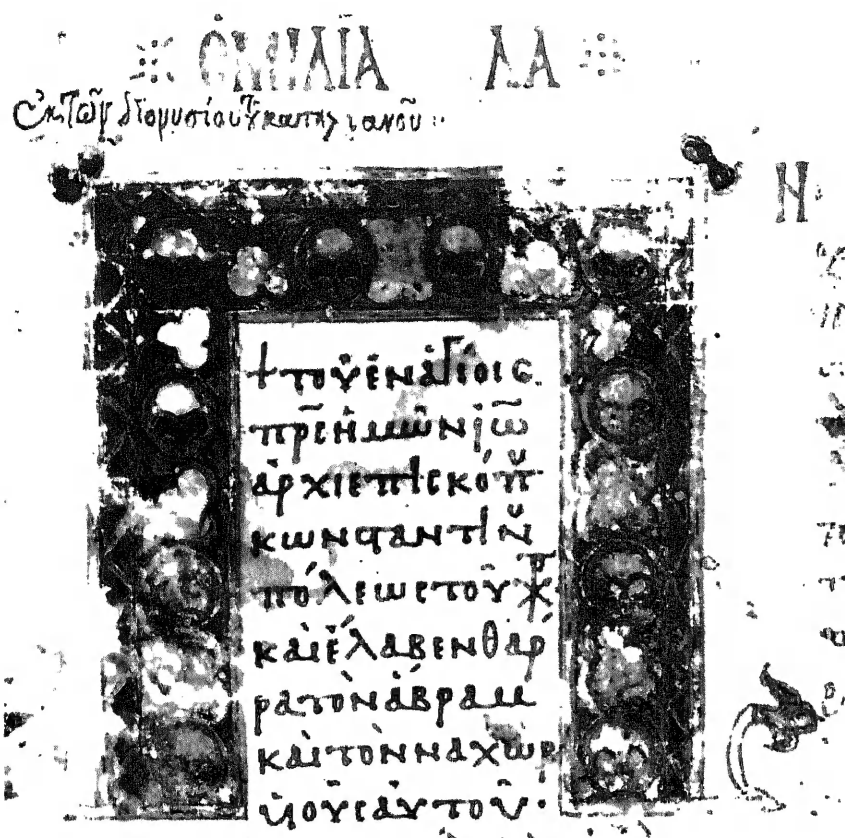 ὉΜΙΛΙΑ ΛΑ
Ἐκ τῶν διονυσίου τοῦ
Ν
+ τοῦ ἐν ἁγίοις
πρ̅ς ἡμῶν ἰω̅
ἀρχιεπισκόπ
κωνσταντιν
πόλεως τοῦ χρ
καὶ ἔλαβεν θάρ
ρα τὸν ἄβραμ
καὶ τὸν ναχὼρ
υἱοὺς αὐτοῦ·